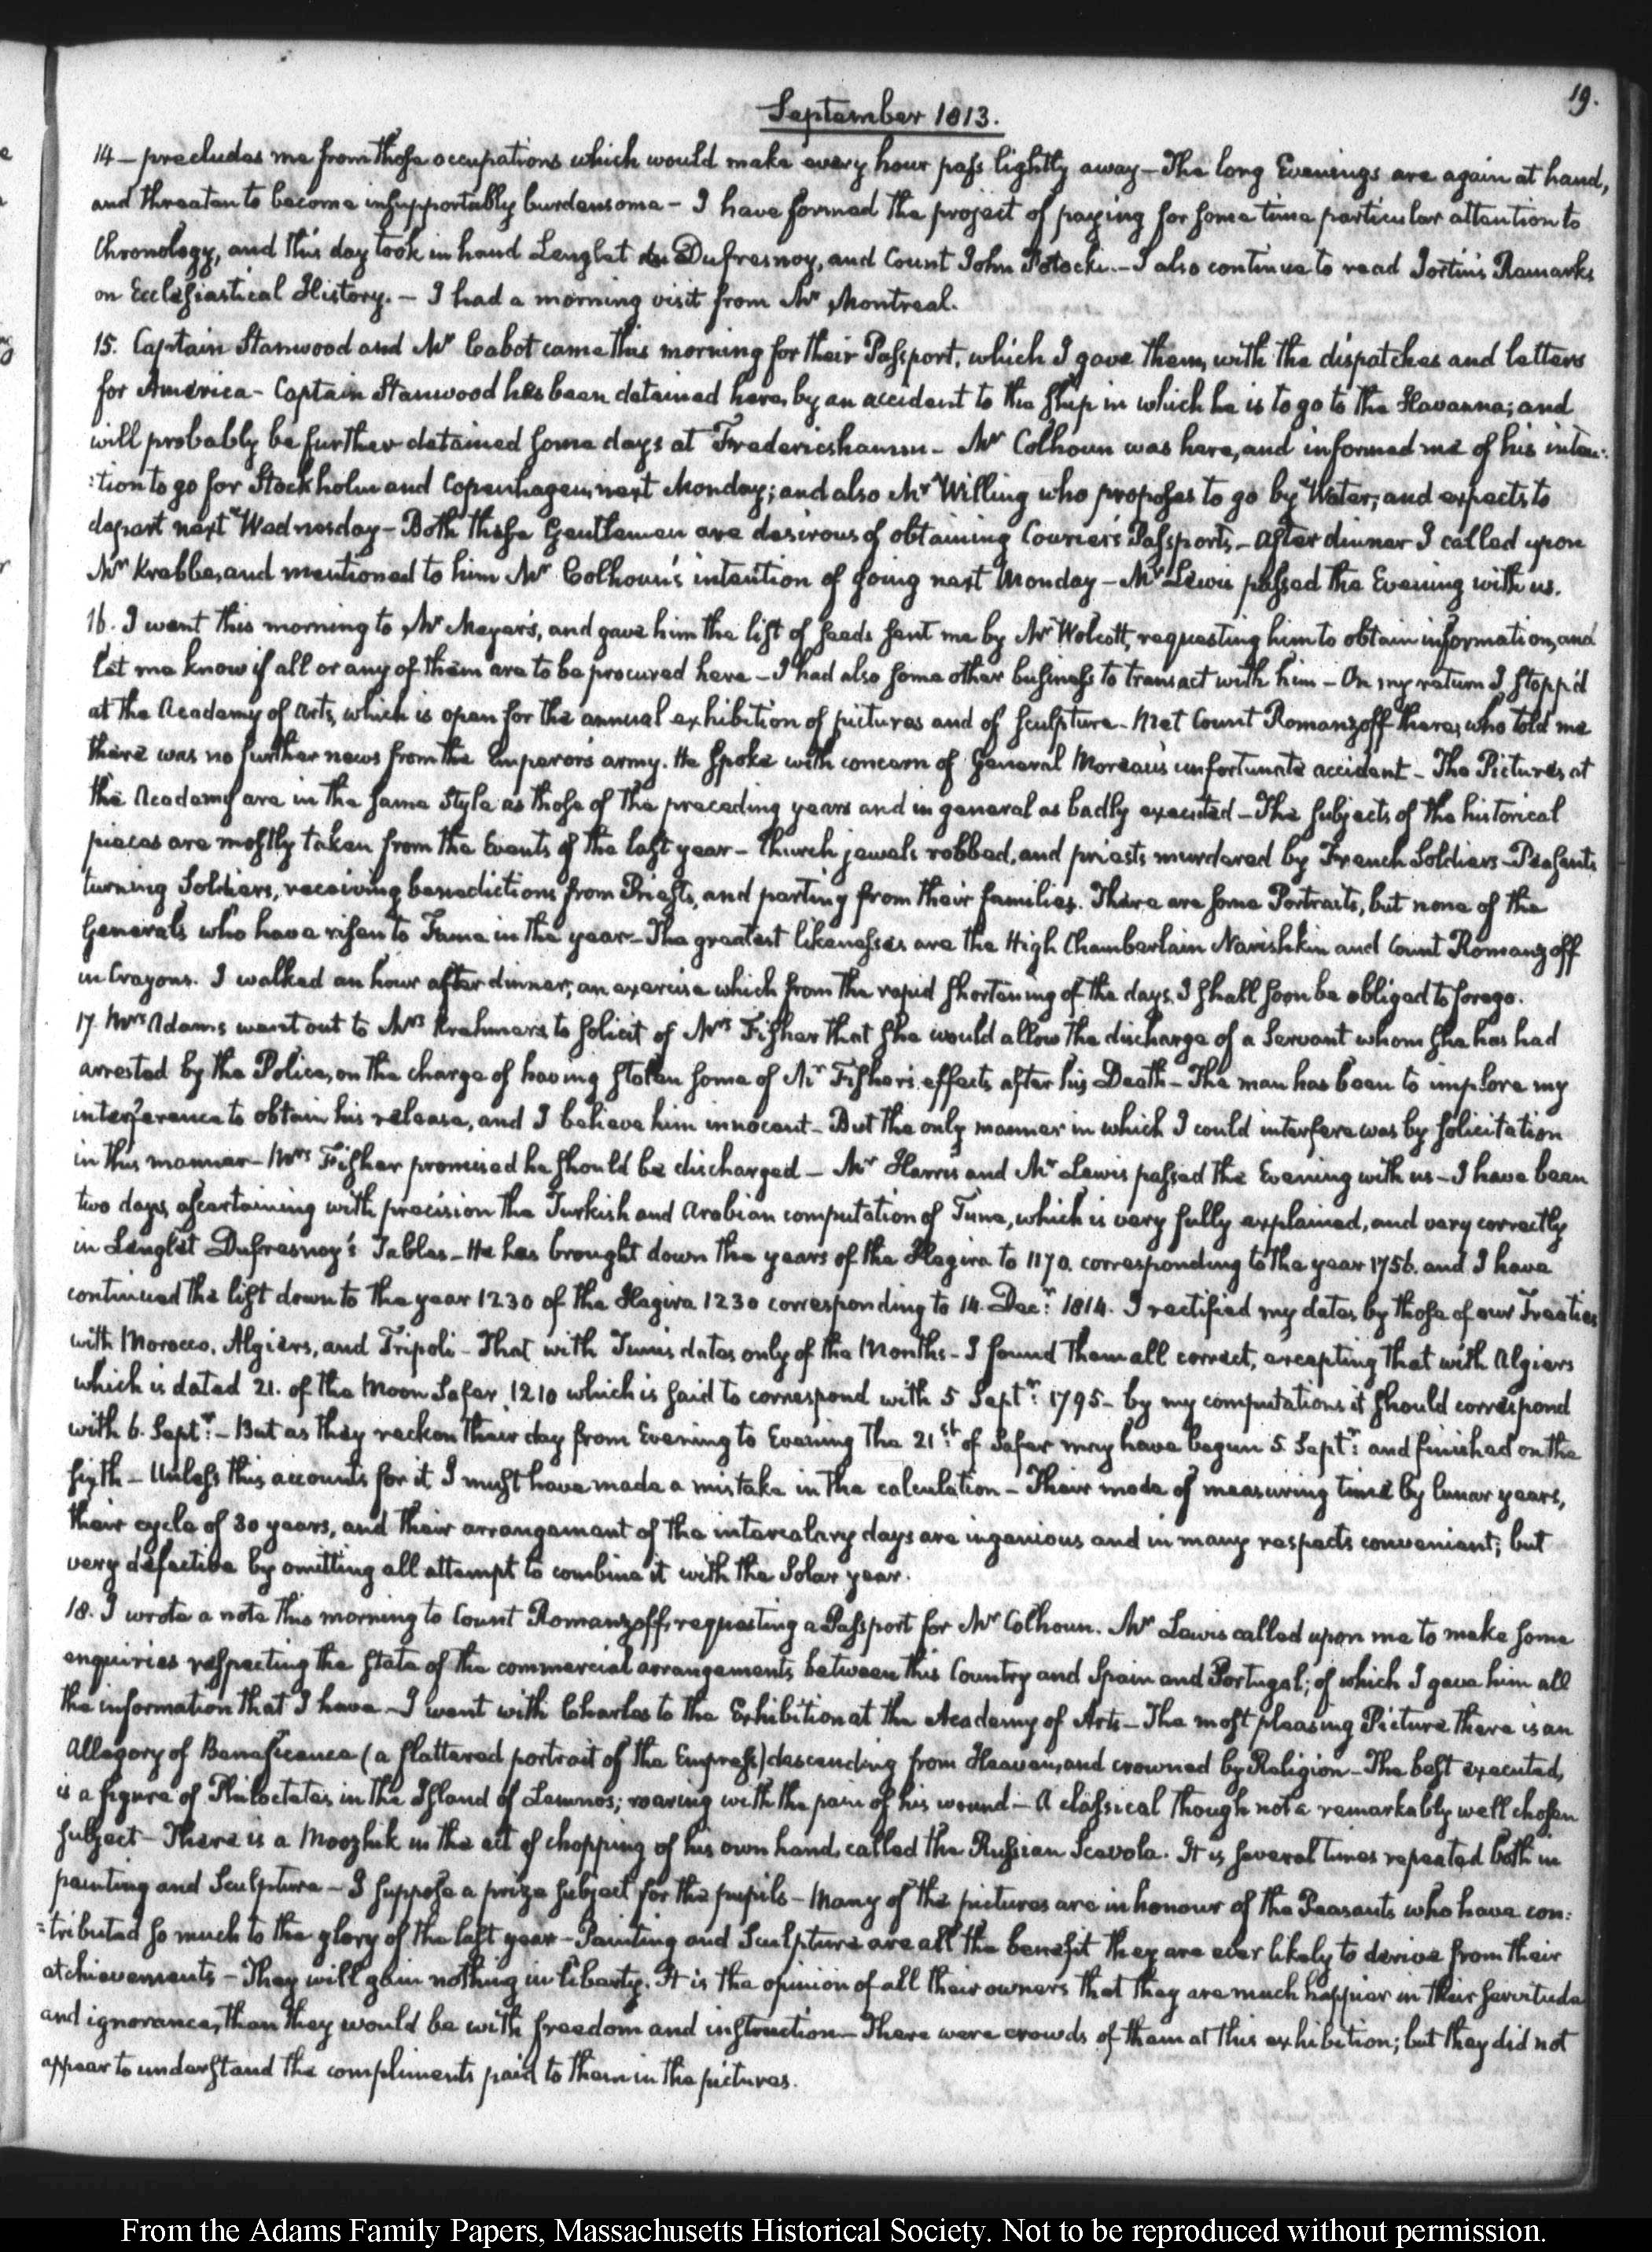 19.
September 1813.
14 – precludes me from those occupations which would make every hour pass lightly away – The long Evenings are again at hand,
and threaten to become insupportably burdensome – I have formed the project of paying for some time particular attention to
Chronology, and this day took in hand Lenglet du Dufresnoy, and Count John Potocki. – I also continue to read Jortin's Remarks
on Ecclesiastical History. – I had a morning visit from Mr Montreal.
15. Captain Stanwood and Mr Cabot came this morning for their Passport, which I gave them, with the dispatches and letters
for America – Captain Stanwood has been detained here, by an accident to the ship in which he is to go to the Havanna; and
will probably be further detained some days at Fredericshamn – Mr Colhoun was here, and informed me of his inten:
:tion to go for Stockholm and Copenhagen, next Monday; and also Mr Willing who proposes to go by Water, and expects to
depart next Wednesday – Both these Gentlemen are desirous of obtaining Courier's Passports – After dinner I called upon
Mr Krabbe, and mentioned to him Mr Colhoun's intention of going next Monday – Mr Lewis passed the Evening with us.
16. I went this morning to Mr Meyer's, and gave him the list of seeds sent me by Mr Wolcott, requesting him to obtain information, and
let me know if all or any of them are to be procured here – I had also some other business to transact with him – On my return I stopp'd
at the Academy of Arts, which is open for the annual exhibition of pictures and of sculpture – Met Count Romanzoff there, who told me
there was no further news from the Emperor's army. He spoke with concern of General Moreau's unfortunate accident – The Pictures at
the Academy are in the same style as those of the preceding years and in general as badly executed – The subjects of the historical
pieces are mostly taken from the Events of the last year – Church jewels robbed, and priests murdered by French Soldiers – Peasants
turning Soldiers, receiving benedictions from Priests, and parting from their families. There are some Portraits, but none of the
Generals who have risen to Fame in the year – The greatest likenesses are the High Chamberlain Narishkin and Count Romanzoff
in Crayons. I walked an hour after dinner; an exercise which from the rapid shortening of the days, I shall soon be obliged to forego.
17. Mrs Adams went out to Mrs Krehmer's to solicit of Mrs Fisher that she would allow the discharge of a Servant whom she has had
arrested by the Police, on the charge of having stolen some of Mr Fisher's effects after his Death – The man has been to implore my
interference to obtain his release, and I believe him innocent – But the only manner in which I could interfere was by solicitation
in this manner – Mrs Fisher promised he should be discharged – Mr Harris and Mr Lewis passed the Evening with us – I have been
two days, ascertaining with precision the Turkish and Arabian computation of Time, which is very fully explained, and very correctly
in Lenglet Dufresnoy's Tables – He has brought down the years of the Hegira to 1170. corresponding to the year 1756. and I have
continued the list down to the year 1230 of the Hegira 1230 corresponding to 14. Decr: 1814. I rectified my dates by those of our Treaties
with Morocco, Algiers, and Tripoli – That with Tunis dates only of the Months – I found them all correct, excepting that with Algiers
which is dated 21. of the Moon Safar, 1210 which is said to correspond with 5 Septr: 1795 – by my computations it should correspond
with 6. Septr: – But as they reckon their day from Evening to Evening The 21st: of Safar may have begun 5. Septr: and finished on the
sixth – Unless this accounts for it I must have made a mistake in the calculation – Their mode of measuring time by lunar years,
their cycle of 30 years, and their arrangement of the intercalary days are ingenious and in many respects convenient; but
very defective by omitting all attempt to combine it with the Solar year.
18. I wrote a note this morning to Count Romanzoff, requesting a Passport for Mr Colhoun. Mr Lewis called upon me to make some
enquiries respecting the state of the commercial arrangements between this Country and Spain and Portugal; of which I gave him all
the information that I have – I went with Charles to the Exhibition at the Academy of Arts – The most pleasing Picture there is an
Allegory of Beneficence (a flattered portrait of the Empress) descending from Heaven, and crowned by Religion – The best executed,
is a figure of Philoctetes, in the Island of Lemnos; roaring with the pain of his wound – A classical though not a remarkably well chosen
subject – There is a Moozhik in the act of chopping of his own hand, called the Russian Scevola. It is several times repeated both in
painting and Sculpture – I suppose a prize subject for the pupils – Many of the pictures are in honour of the Peasants who have con:
:tributed so much to the glory of the last year – Painting and Sculpture are all the benefit they are ever likely to derive from their
atchievements – They will gain nothing in liberty. It is the opinion of all their owners that they are much happier in their servitude
and ignorance, than they would be with freedom and instruction – There were crowds of them at this exhibition; but they did not
appear to understand the compliments paid to them in the pictures.
From the Adams Family Papers, Massachusetts Historical Society. Not to be reproduced without permission.